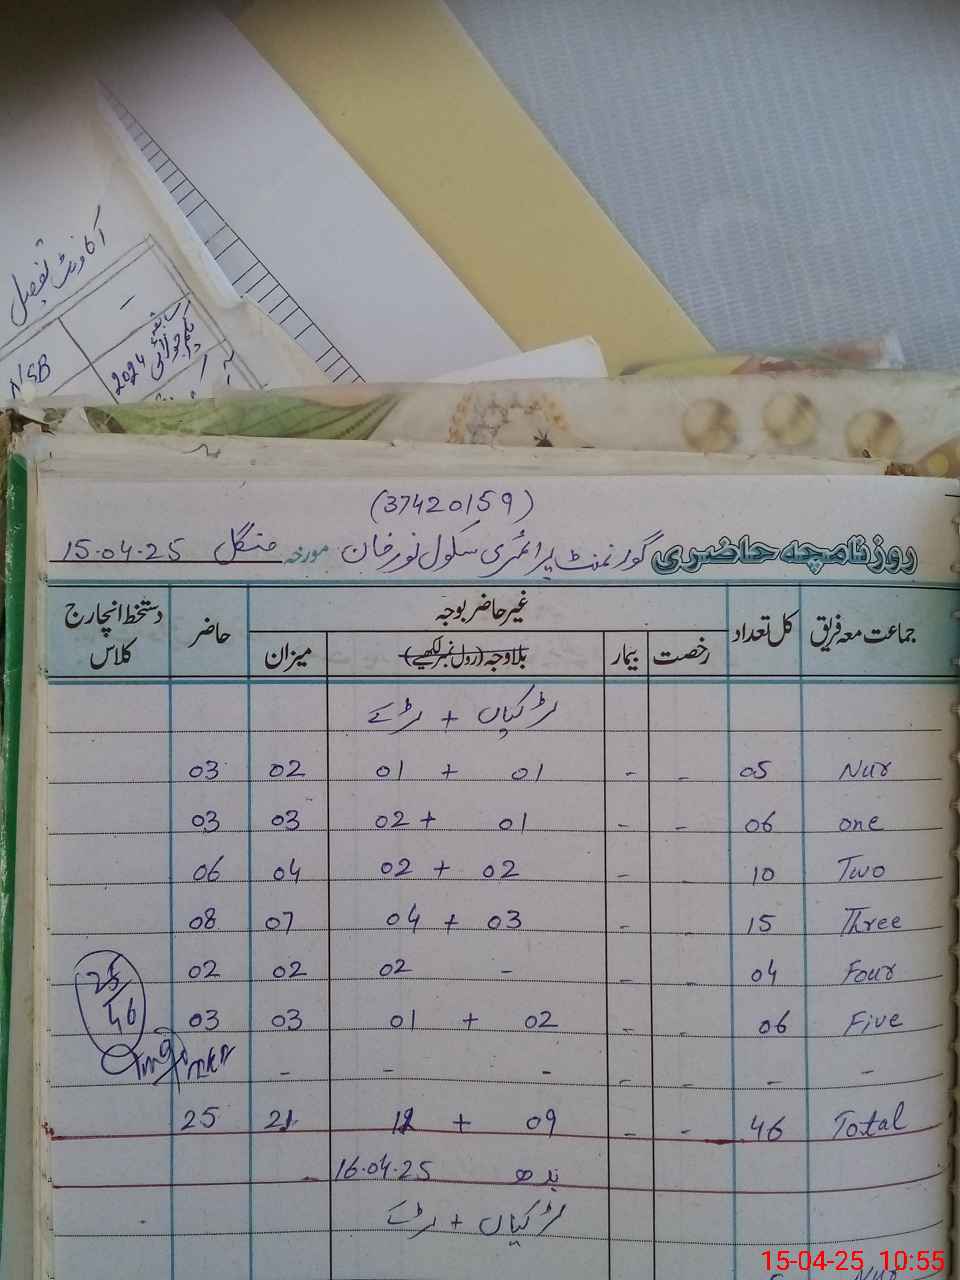 اکاونٹ تفصیل
N/SB
2024
(37420159)
روزنامچہ حاضری گورنمنٹ پرائمری سکول نورخان مورخہ منگل 15.04.25
جماعت معہ فریق کل تعداد غیر حاضر بوجہ حاضر دستخط انچارج کلاس
رخصت بیمار بلاوجہ (رول نمبر لکھیے) میزان
لڑکیاں + لڑکے
Nur 05 - - 01 + 01 02 03
one 06 - - 02 + 01 03 03
Two 10 - - 02 + 02 04 06
Three 15 - - 04 + 03 07 08
Four 04 - - 02 - 02 02
Five 06 - - 01 + 02 03 03
25/46
- - - - - - -
Total 46 - - 12 + 09 21 25
بدھ 16.04.25
لڑکیاں + لڑکے
Nur
15-04-25 10:55